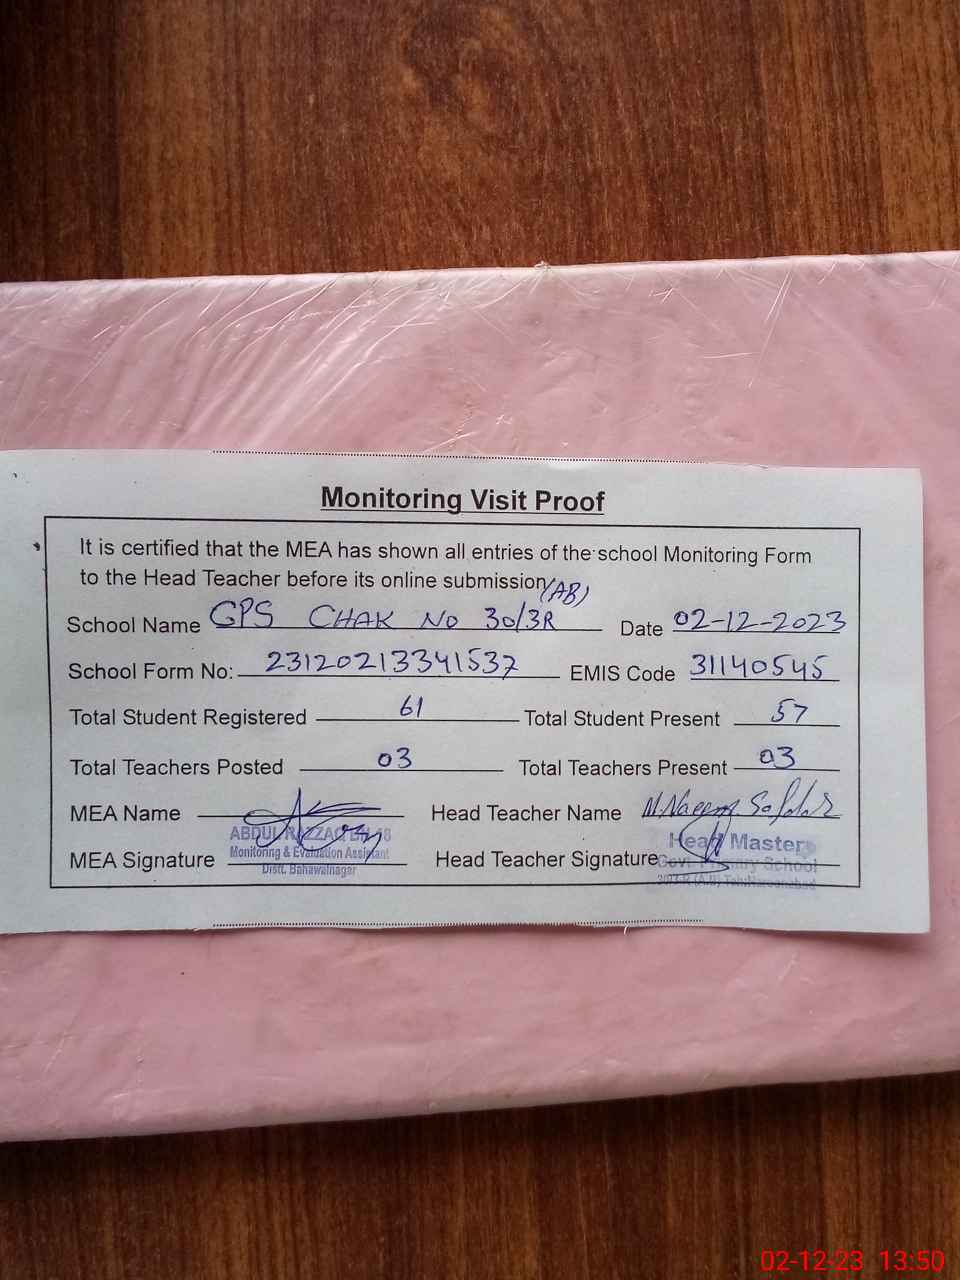 Monitoring Visit Proof
It is certified that the MEA has shown all entries of the school Monitoring Form
to the Head Teacher before its online submission
(AB)
School Name GPS CHAK NO 30/3R Date 02-12-2023
School Form No: 23120213341537 EMIS Code 31140545
Total Student Registered 61 Total Student Present 57
Total Teachers Posted 03 Total Teachers Present 03
MEA Name Head Teacher Name M. Naeem Safdar
ABDUL RAZZAQ Head Master
MEA Signature Monitoring & Evaluation Assistant Head Teacher Signature Govt. Primary School
Distt. Bahawalnagar
02-12-23 13:50